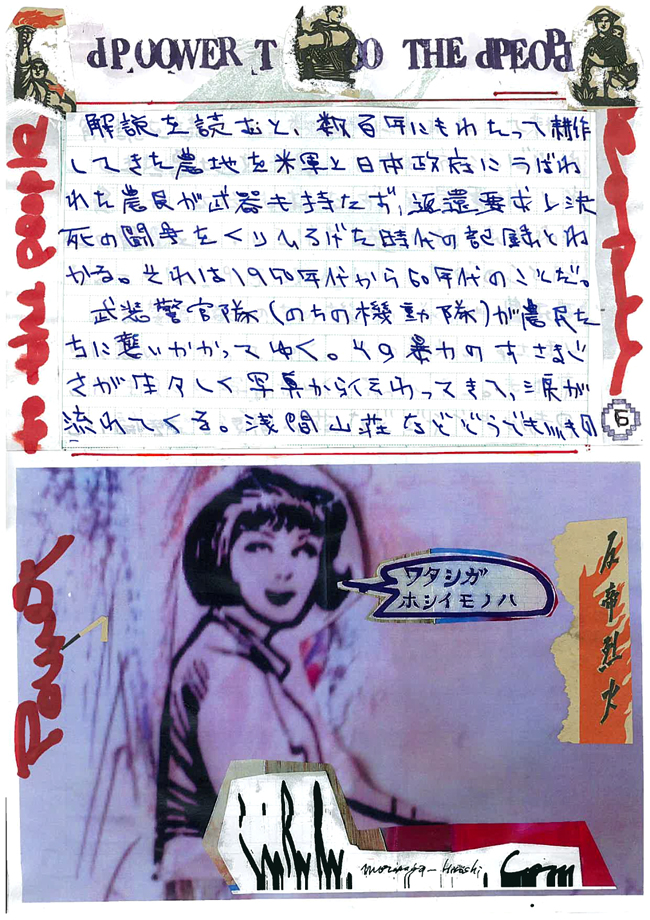 dP,OOWER T OO THE dPEOPd
to the people
解説を読むと、数百年にもわたって耕作
してきた農地を米軍と日本政府にうばわ
れた農民が武器も持たず、返還要求し決
死の闘争をくりひろげた時代の記録とわ
かる。それは1950年代から60年代のことだ。
武装警官隊(のちの機動隊)が農民た
ちに襲いかかってゆく。その暴力のすさまじ
さが生々しく写真から伝わってきて、涙が
流れてくる。浅間山荘などどうでも
Power
ワタシガ
ホシイモノハ
反帝烈火
.com